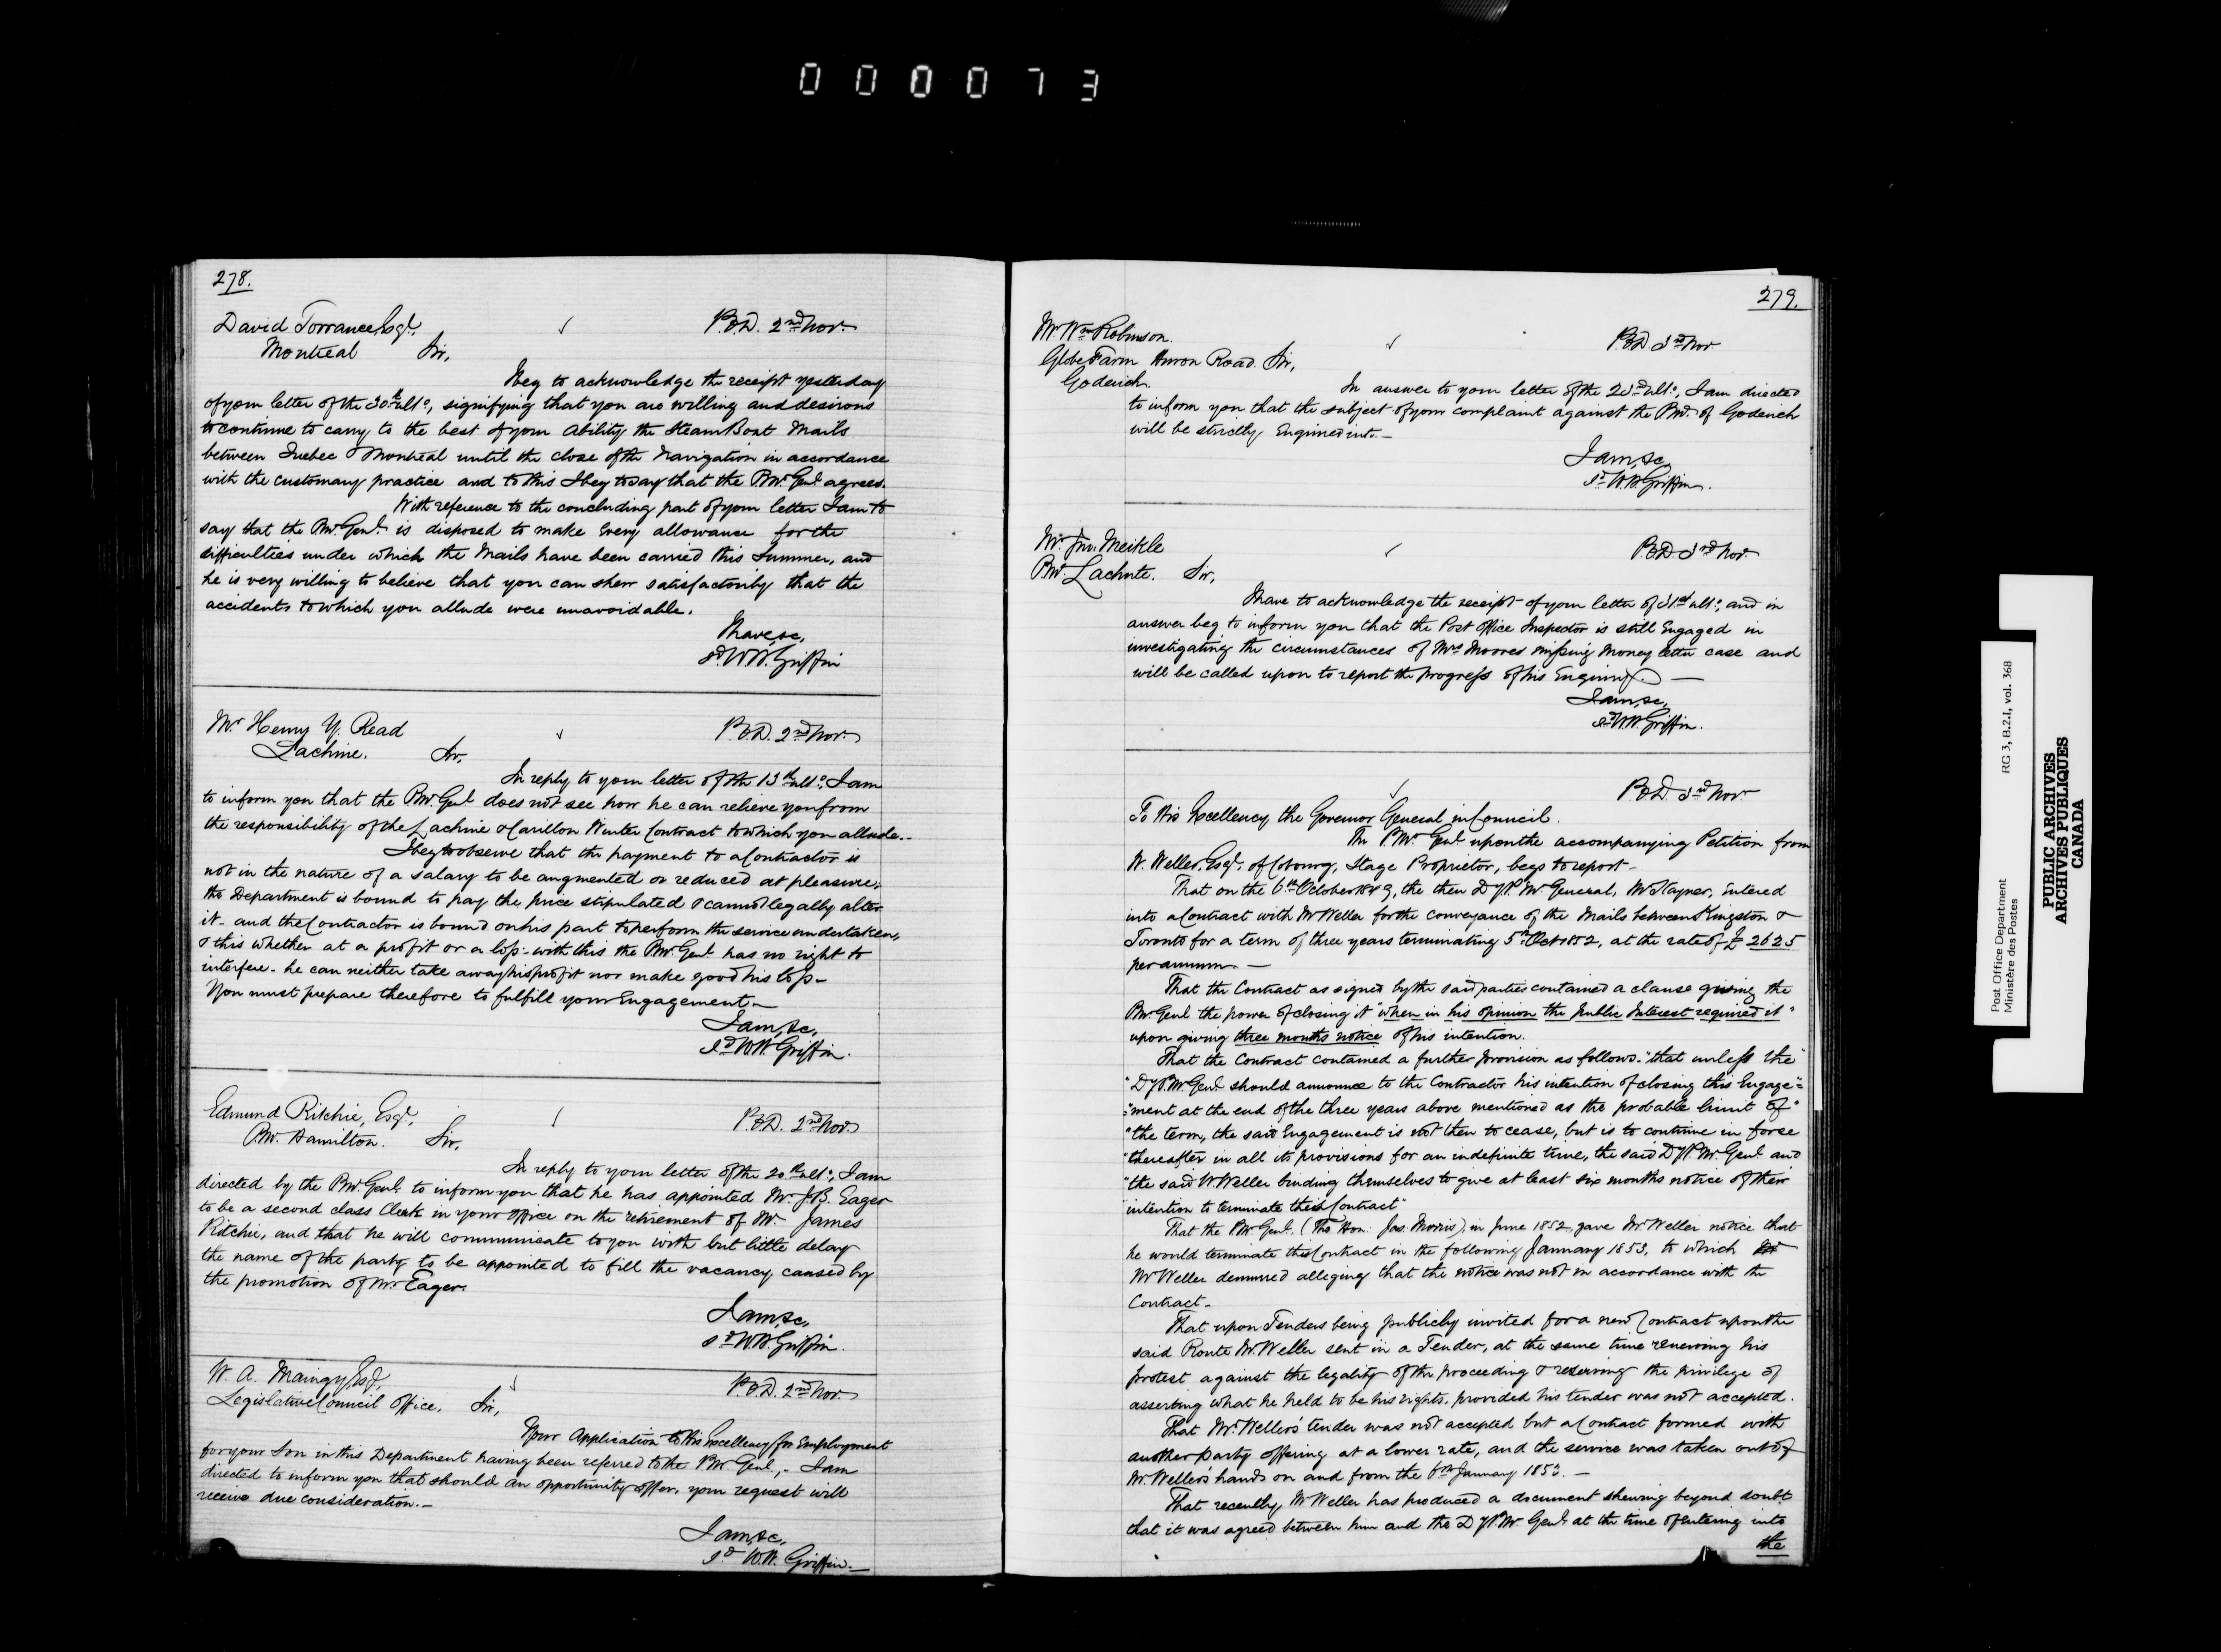 000073
278.
David Torrance, Esqr. P.O.D. 2nd Nov.
Montreal Sir,
I beg to acknowledge the receipt yesterday
of your letter of the 30th ulto, signifying that you are willing and desirous
to continue to carry to the best of your Ability the Steam Boat Mails
between Quebec & Montreal until the close of the Navigation in accordance
with the customary practice and to this I beg to say that the P.M. Genl. agrees.
With reference to the concluding part of your letter I am to
say that the P.M. Genl. is disposed to make Every allowance for the
difficulties under which the Mails have been carried this Summer, and
he is very willing to believe that you can shew satisfactorily that the
accidents to which you allude were unavoidable.
I have, &c,
Sd W.H. Griffin
Mr Henry Y. Read P.O.D. 2nd Nov.
Lachine. Sir,
In reply to your letter of the 13th ulto, I am
to inform you that the P.M. Genl does not see how he can relieve you from
the responsibility of the Lachine & Carillon Winter Contract to which you allude.-
I beg to observe that the payment to a Contractor is
not in the nature of a Salary to be augmented or reduced at pleasure;
the Department is bound to pay the price stipulated & cannot legally alter
it - and the Contractor is bound on his part to perform the service undertaken,
& this whether at a profit or a loss - with this the P.M. Genl has no right to
interfere - he can neither take away his profit nor make good his loss -
You must prepare therefore to fulfill your Engagement -
I am, &c,
Sd W.H. Griffin.
Edmund Ritchie, Esqr, P.O.D. 2nd Nov.
P.M. Hamilton. Sir,
In reply to your letter of the 20th ulto, I am
directed by the P.M. Genl. to inform you that he has appointed Mr. J.B. Eager
to be a second class Clerk in your Office on the retirement of Mr. James
Ritchie, and that he will communicate to you with but little delay
the name of the party to be appointed to fill the vacancy caused by
the promotion of Mr. Eager.
I am, &c,
Sd W.H. Griffin.
W. A. Maingy, Esq, P.O.D. 2nd Nov.
Legislative Council Office. Sir,
Your Application to His Excellency for Employment
for your Son in this Department having been referred to the P.M. Genl., - I am
directed to inform you that should an opportunity offer, your request will
receive due consideration. -
I am, &c,
Sd W.H. Griffin. -
279.
Mr. Wm Robinson. P.O.D. 3rd Nov.
Globe Farm Huron Road. Sir,
Goderich.
In answer to your letter of the 23rd ulto, I am directed
to inform you that the subject of your complaint against the P.M. of Goderich
will be strictly Enquired into. -
I am, &c,
Sd W.H. Griffin.
Mr. Jno. Meikle P.O.D. 3rd Nov.
P.M. Lachute. Sir,
I have to acknowledge the receipt of your letter of 31st ulto, and in
answer beg to inform you that the Post Office Inspector is still Engaged in
investigating the circumstances of Mrs Moores missing Money letter case and
will be called upon to report the progress of his Enquiry. -
I am, &c,
Sd W.H. Griffin.
P.O.D. 3rd Nov.
To His Excellency the Governor General in Council.
The P.M. Genl upon the accompanying Petition from
W. Weller, Esqr. of Cobourg, Stage Proprietor, begs to report -
That on the 6th October 1849, the then Dy P.M. General, Mr Stayner, Entered
into a Contract with Mr Weller for the conveyance of the Mails between Kingston &
Toronto for a term of three years terminating 5th Oct 1852, at the rate of £2625
per annum. -
That the Contract as signed by the said parties contained a clause giving the
P.M. Genl the power of closing it "when in his opinion the Public Interest required it"
upon giving three months notice of his intention.
That the Contract contained a further provision as follows - "that unless the"
"Dy P.M. Genl should announce to the Contractor his intention of closing this Engage="
"=ment at the end of the three years above mentioned as the probable limit of"
"the term, the said Engagement is not then to cease, but is to continue in force
"thereafter in all its provisions for an indefinite time, the said Dy P.M. Genl and
"the said W. Weller binding themselves to give at least six months notice of their
"intention to terminate this Contract"
That the P.M. Genl. (The Hon: Jas. Morris), in June 1852, gave Mr. Weller notice that
he would terminate this Contract in the following January 1853, to which
Mr Weller demurred alleging that the notice was not in accordance with the
Contract -
That upon Tenders being publicly invited for a new Contract upon the
said Route Mr. Weller sent in a Tender, at the same time renewing his
protest against the legality of the proceeding & reserving the privilege of
asserting what he held to be his rights, provided his tender was not accepted.
That Mr. Weller's tender was not accepted but a Contract formed with
another party offering at a lower rate, and the service was taken out of
Mr. Weller's hands on and from the 6th January 1853. -
That recently Mr Weller has produced a document shewing beyond doubt
that it was agreed between him and the Dy P.M. Genl. at the time of entering into
the
Post Office Department RG 3, B.2.I, vol. 368
Ministère des Postes
PUBLIC ARCHIVES
ARCHIVES PUBLIQUES
CANADA